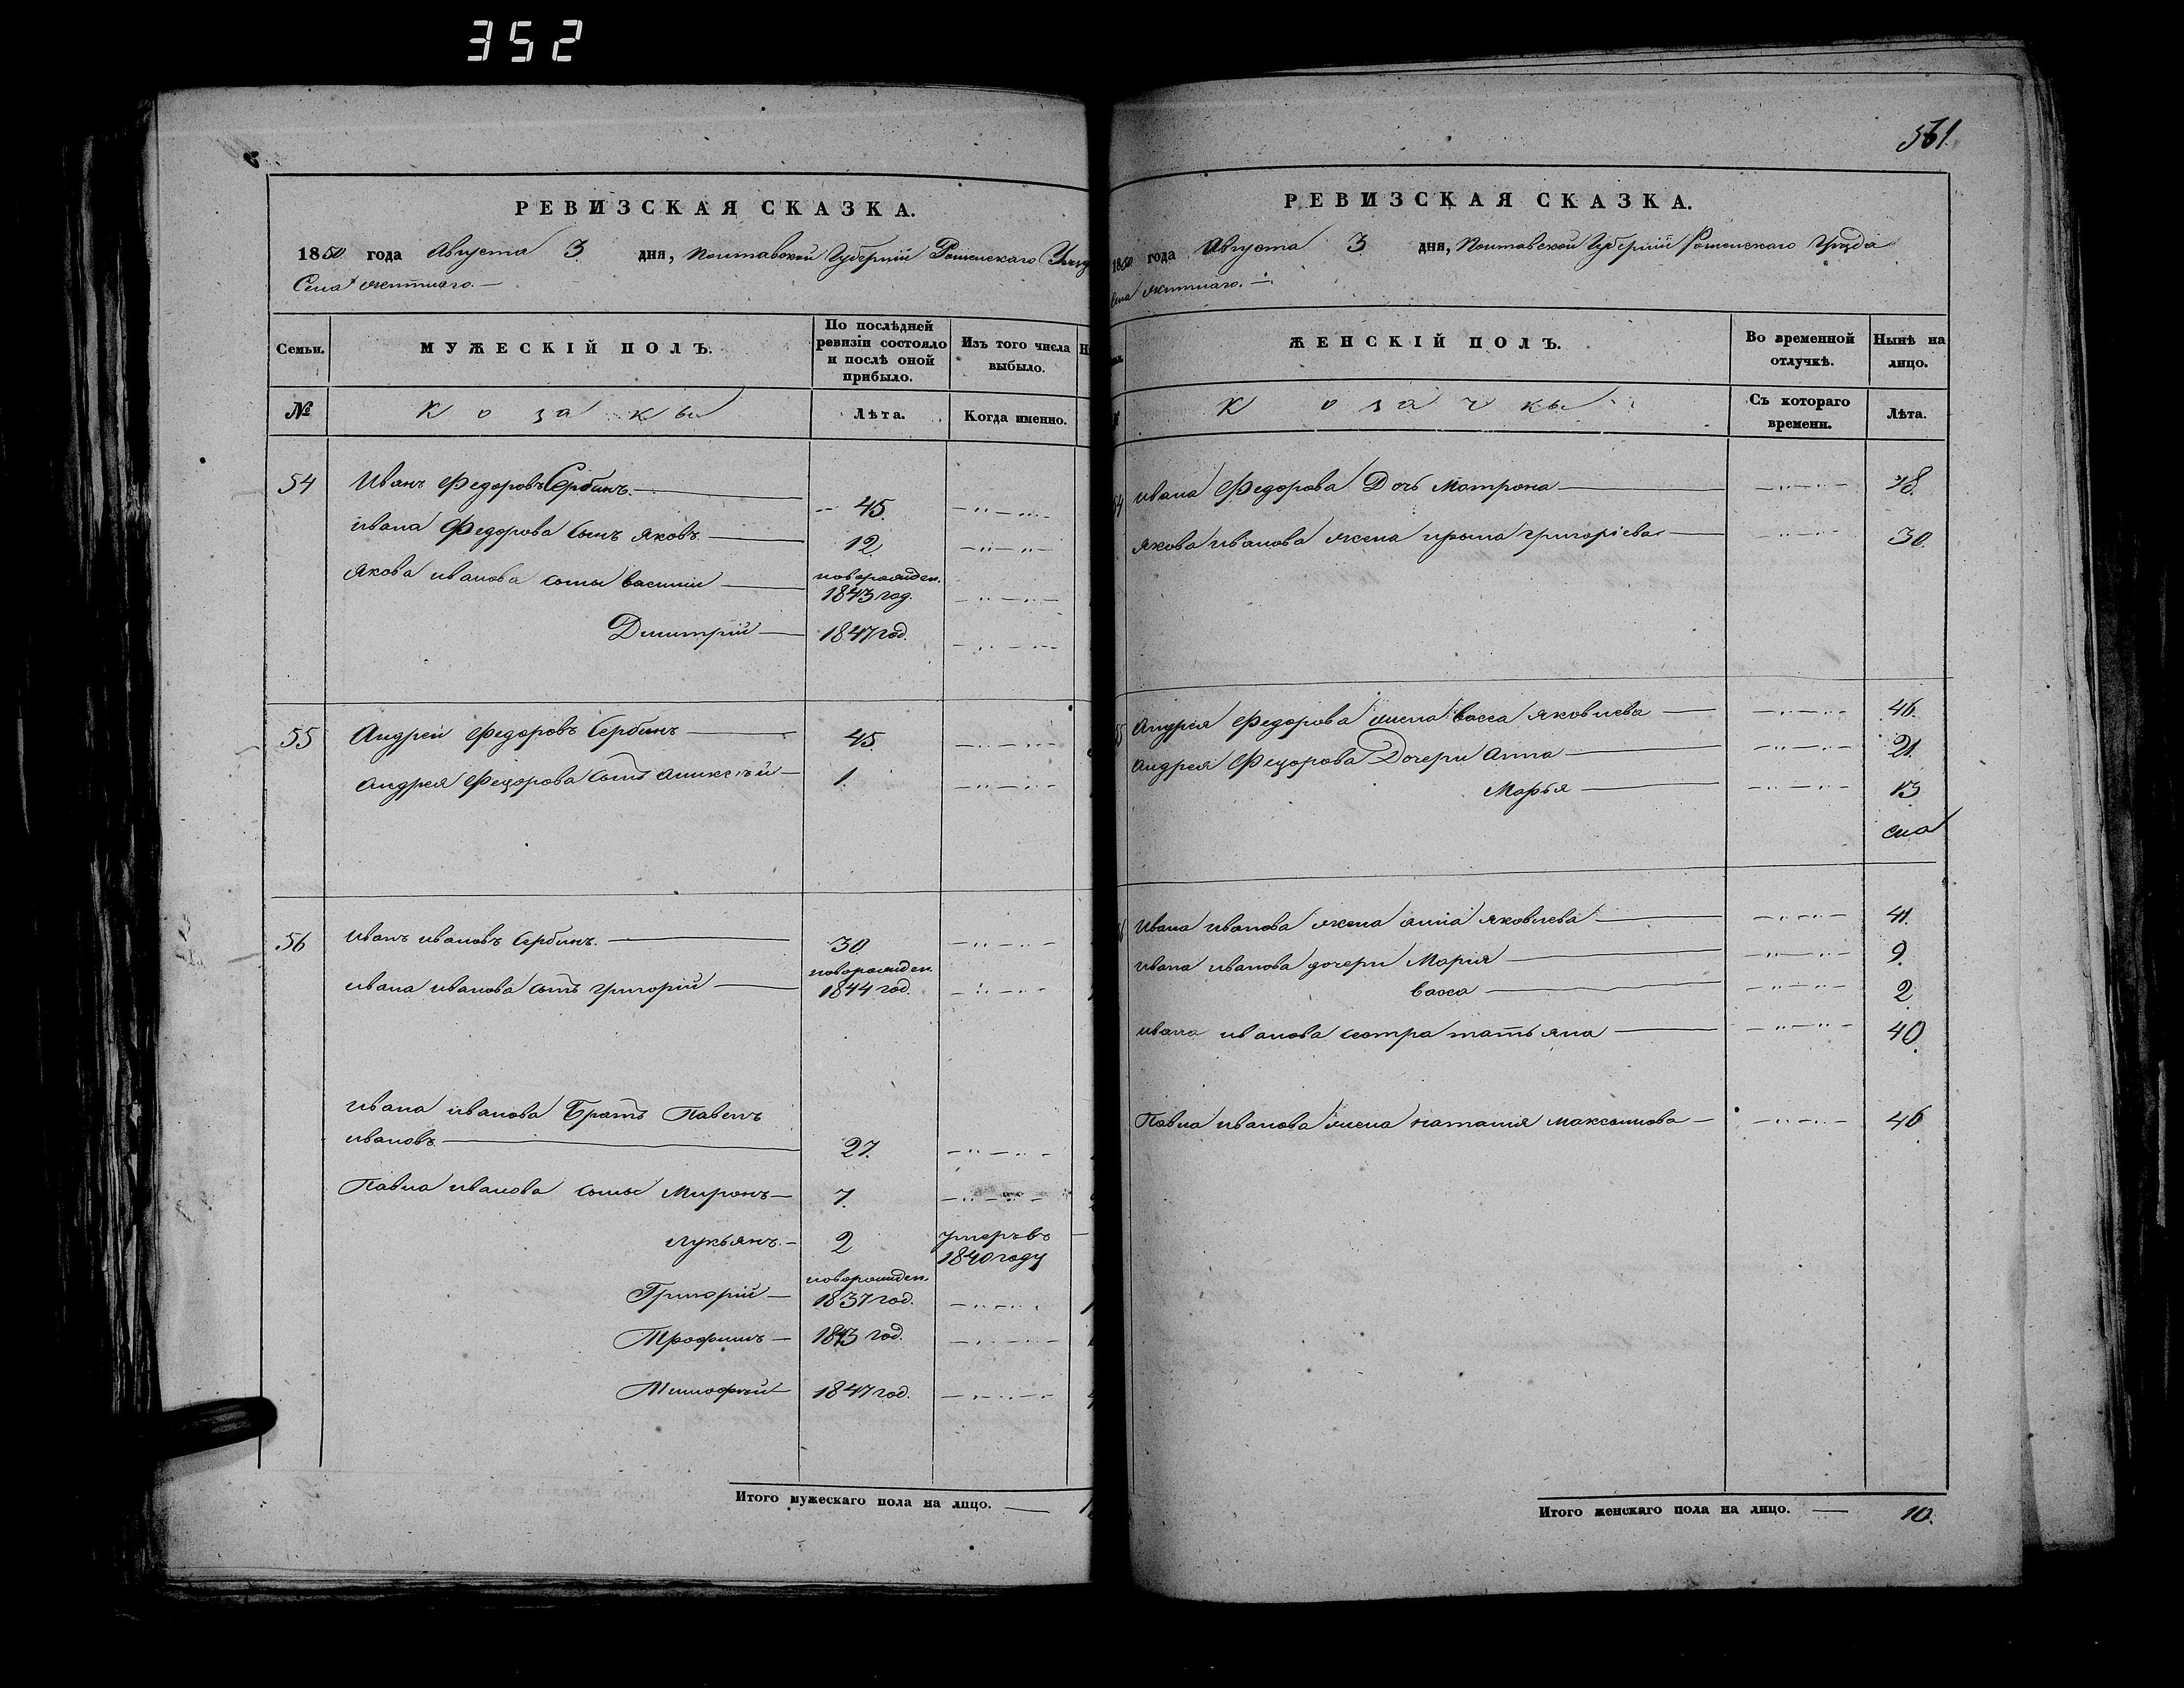 352
РЕВИЗСКАЯ СКАЗКА.
1850 года Августа 3 дня, Полтавской Губерніи Роменскаго Уѣзд
Села
Семьи.
МУЖЕСКІЙ ПОЛЪ.
По послѣдней ревизіи состояло и послѣ оной прибыло.
Изъ того числа выбыло.
№
Козакы
Лѣта.
Когда именно.
54 Иванъ Федоровъ Сербинъ. 45.
Ивана Федорова сынъ Яковъ 12
Якова Иванова сыны Василий новорожден. 1843 год.
Дмитрій 1847 год.
55 Андрей Федоровъ Сербинъ 45
Андрея Федорова сынъ Алексѣй 1.
56 Иванъ Ивановъ Сербинъ. 30
Ивана Иванова сынъ Григорій новорожден. 1844 год.
Ивана Иванова Братъ Павелъ
Ивановъ 27.
Павла Иванова сыны Миронъ 7.
Лукьянъ. 2 умеръ въ 1840 году
Григорій новорожден. 1837 год.
Трофимъ 1843 год.
Тимофѣй 1847 год.
Итого мужескаго пола на лицо.
561.
РЕВИЗСКАЯ СКАЗКА.
1850 года Августа 3 дня, Полтавской Губерніи Роменскаго Уѣзда
Села
ЖЕНСКІЙ ПОЛЪ.
Во временной отлучкѣ.
Нынѣ на лицо.
Козачкы
Съ котораго времени.
Лѣта.
54 Ивана Федорова Дочь Мотрона
Якова Иванова жена Ирына Григоріева 30.
55 Андрея Федорова жена Васса Яковлева 46.
Андрея Федорова Дочери Анна 21.
Марья 13
Ивана Иванова жена Анна Яковлева 41.
Ивана Иванова дочери Мария 9.
Васса 2
Ивана Иванова сестра Татьяна 40.
Павла Иванова жена Наталия Максимова 46
Итого женскаго пола на лицо. 10.